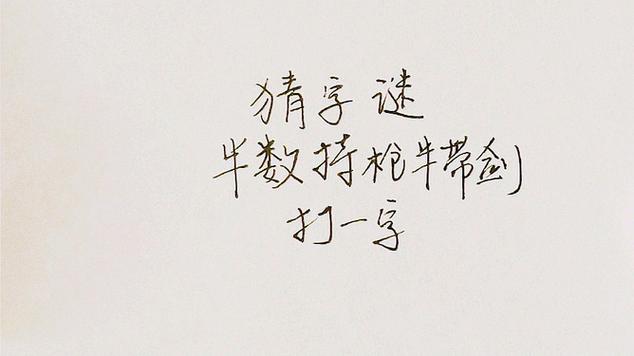 猜字谜
半数持枪半带剑
打一字